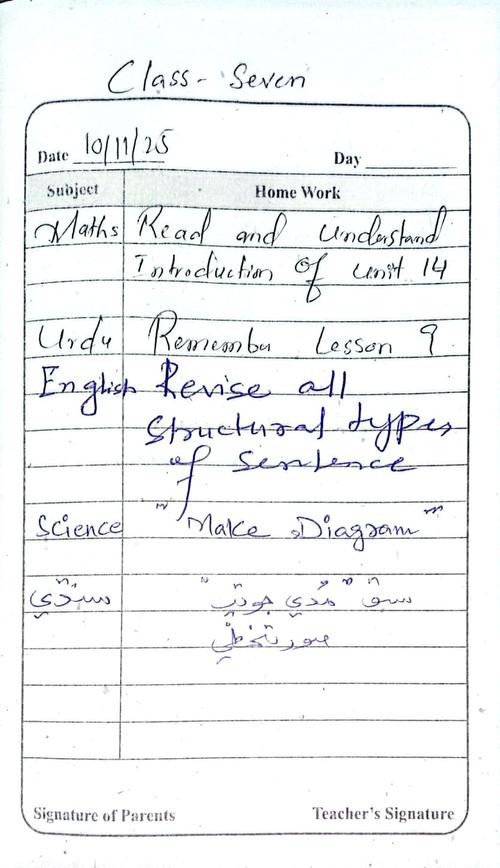 Class - Seven
Date 10/11/25 Day
Subject Home Work
Maths Read and Understand
Introduction of unit 14
Urdu Remember Lesson 9
English Revise all
structural types
of sentence
Science "Make Diagram"
سنڌي سبق "
Signature of Parents Teacher's Signature